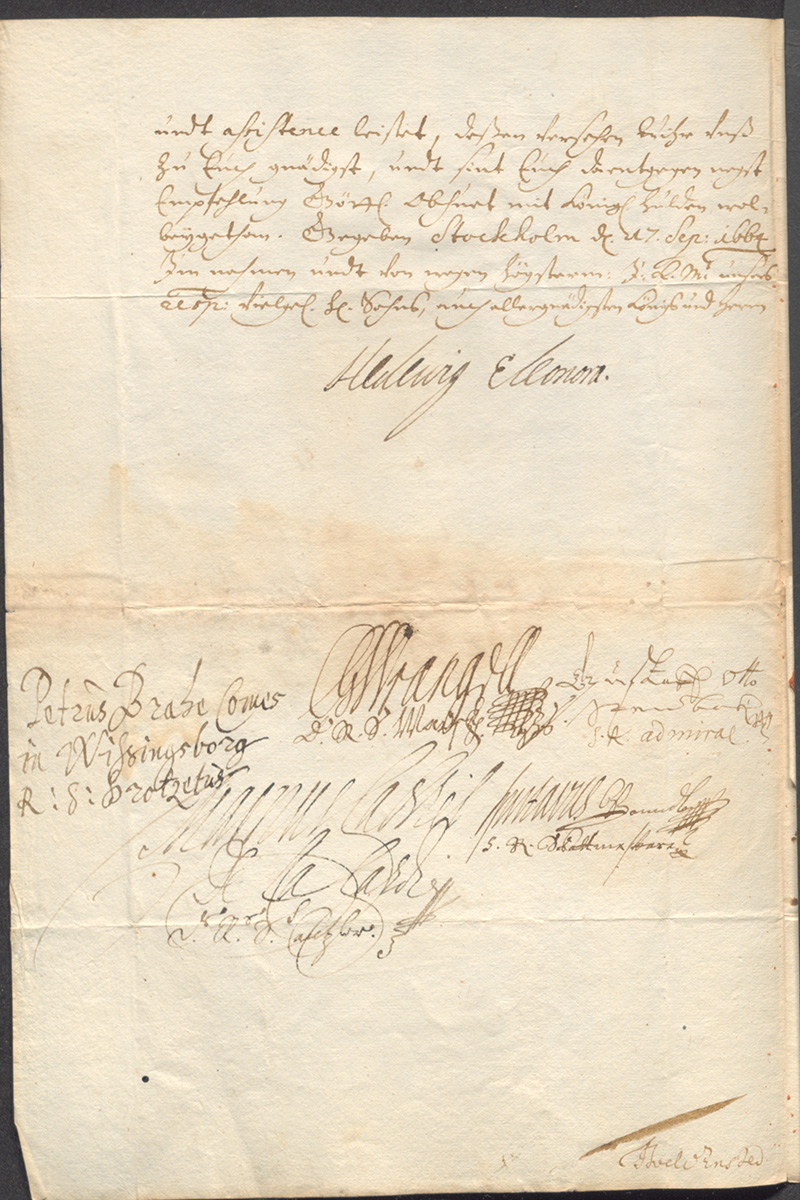 undt assistence leistet, deßen versehen Wihr Unß
zu Euch gnädigst, undt sint Euch darentgegen negst
Empfehlung Göttl. Obhuet mit Königl. Hulden wol-
beygethan. Gegeben Stockholm d. 17. Sep: 1664
Im nahmen undt von wegen högsterm: I. K. M. unsers
resp: Vielgel. H. Sohns, auch allergnädigsten Königs und Herrn
Hedewig Eleonora.
Petrus Brahe Comes
in Wissingsborg
R: S: Drotzetus
CGWrangell
S. R. S. Marsk.
Gustaff Otto
Steenbock
S. R. admiral
Magnus Gabriel
De la Gardie
S. R. Cantzler.
Gustavus Bonde
S. R. Skattmestare